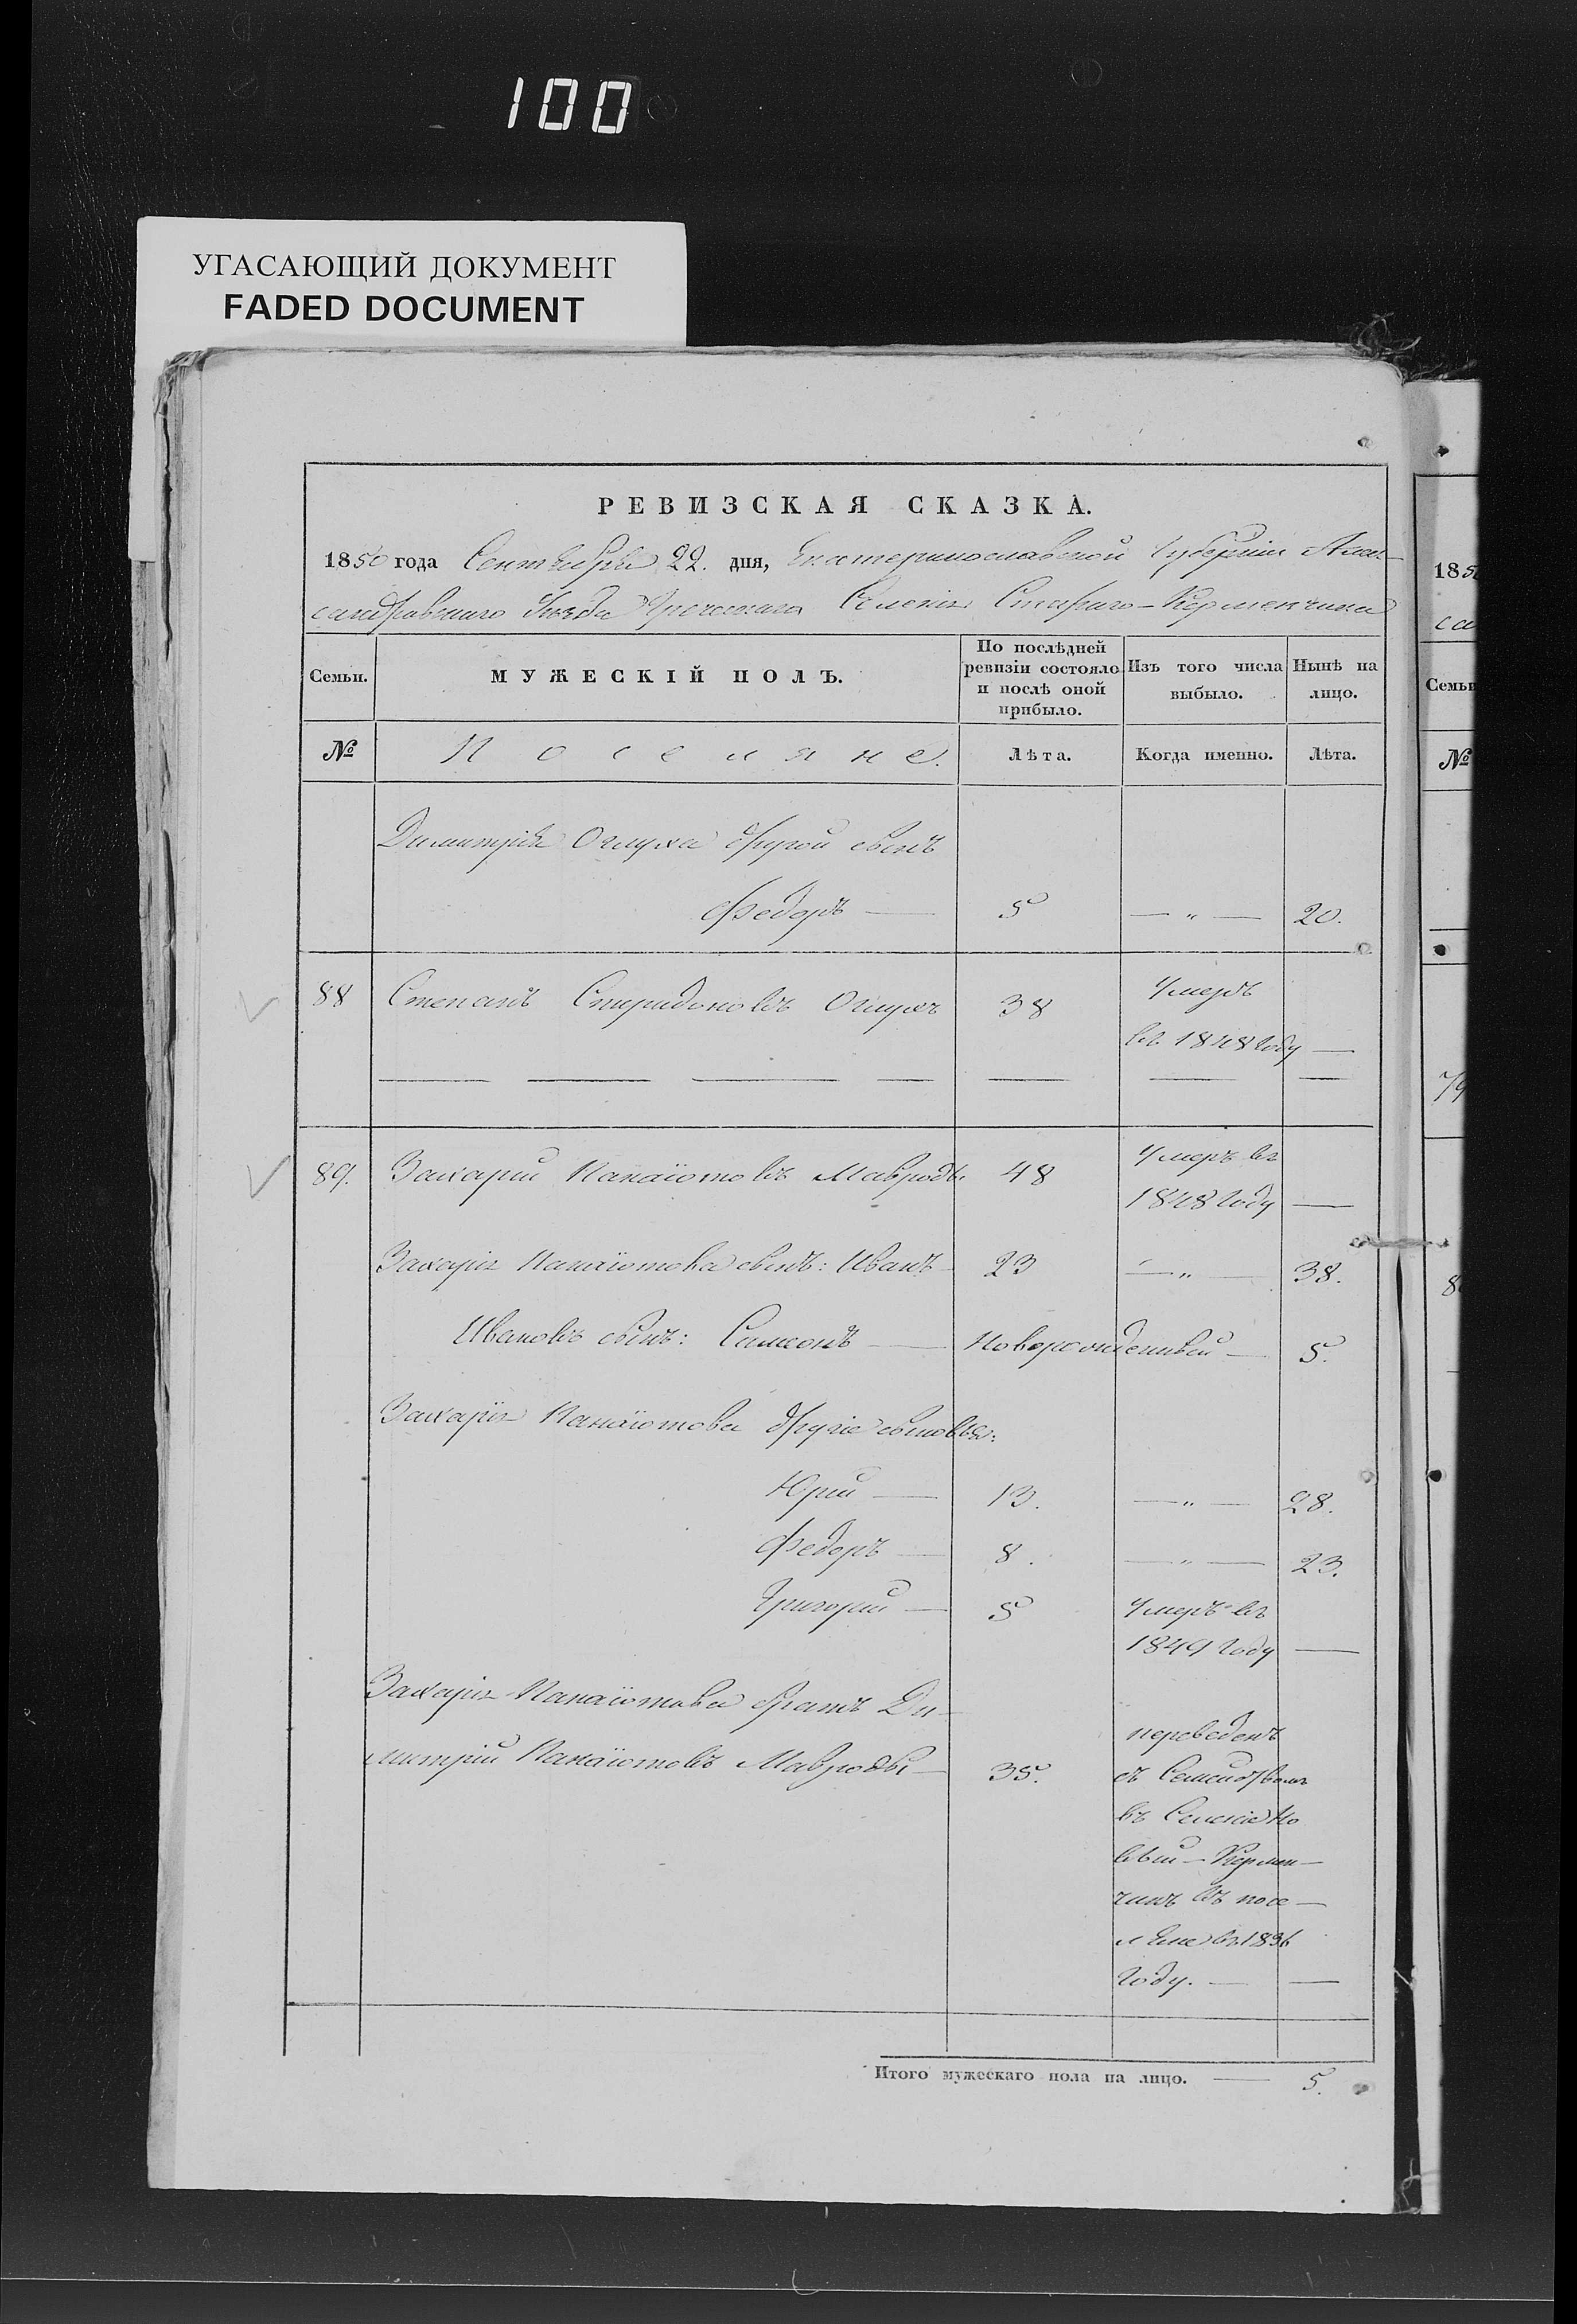 100
УГАСАЮЩИЙ ДОКУМЕНТ
FADED DOCUMENT
РЕВИЗСКАЯ СКАЗКА.
1850 года Сентября 22. дня, Екатеринославской Губернии Алек-
сандровскаго Уѣзда Греческаго Селенія Стараго-Керменчика
Семьи.
МУЖЕСКІЙ ПОЛЪ.
По послѣдней ревизіи состояло и послѣ оной прибыло.
Изъ того числа выбыло.
Нынѣ на лицо.
№ Поселяне. Лѣта. Когда именно. Лѣта.
Димитрія другой сынъ
Федоръ — 5 — „ — 20.
88 Степанъ Спиридоновъ 38 Умеръ
въ 1848 году —
89. Захарий Панаіотовъ Мавроды 48 Умеръ въ
1848 году —
Захарія Панаіотова сынъ: Иванъ 23 — „ — 38.
Ивановъ сынъ: Симеонъ — Новорожденный — 5.
Захарія Панаіотова другіе сыновья:
Юрий — 13. — „ — 28.
Федоръ — 8. — „ — 23.
Григорий — 5 Умеръ въ
1849 году —
Захарія Панаіотова братъ Ди-
митрій Панаіотовъ Мавроды — 35.
переведенъ
съ Семействомъ
въ Селеніе Но
вый-Кермен-
чикъ въ посе-
въ 1836
году. — —
Итого мужескаго пола на лицо. — 5.
185
са
Семьи
№
79
8